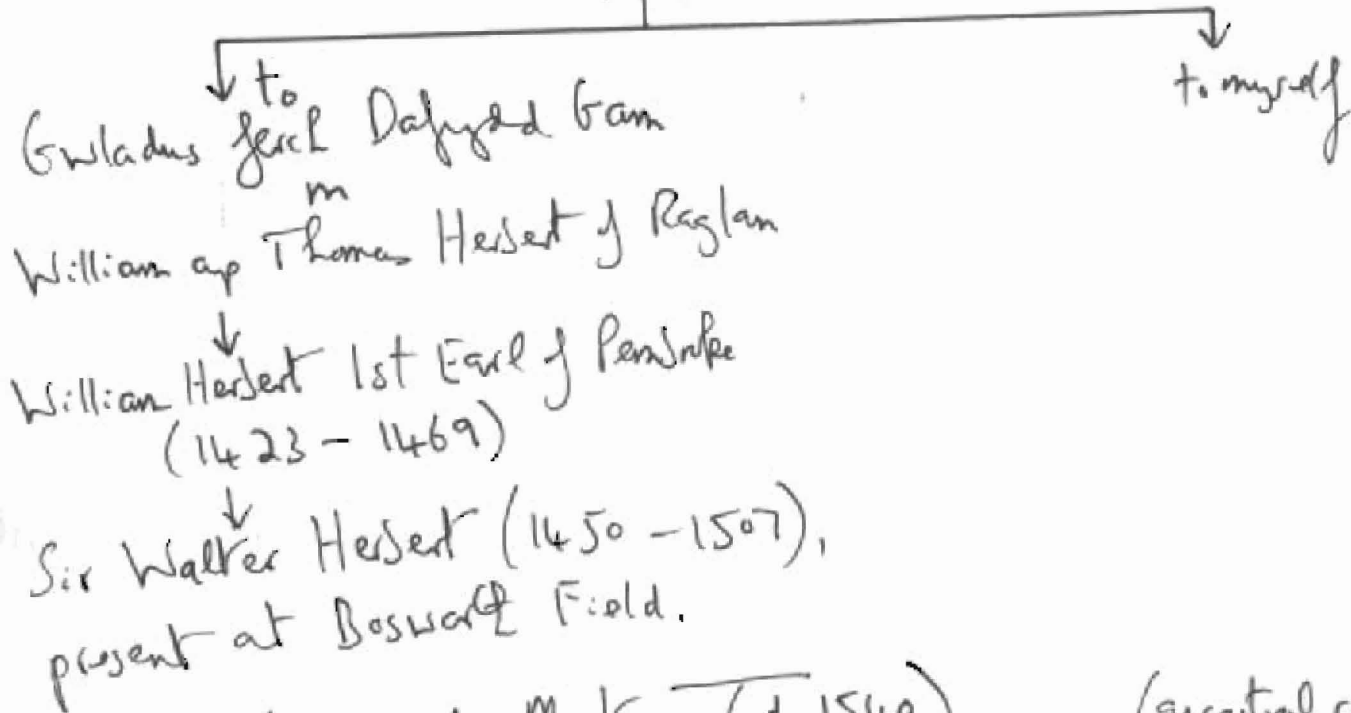 to
to myself
Gwladus ferch Dafydd Gam
m
William ap Thomas Herbert of Raglan
William Herbert 1st Earl of Pembroke
(1423 - 1469)
Sir Walter Herbert (1450 - 1507),
present at Bosworth Field.
m